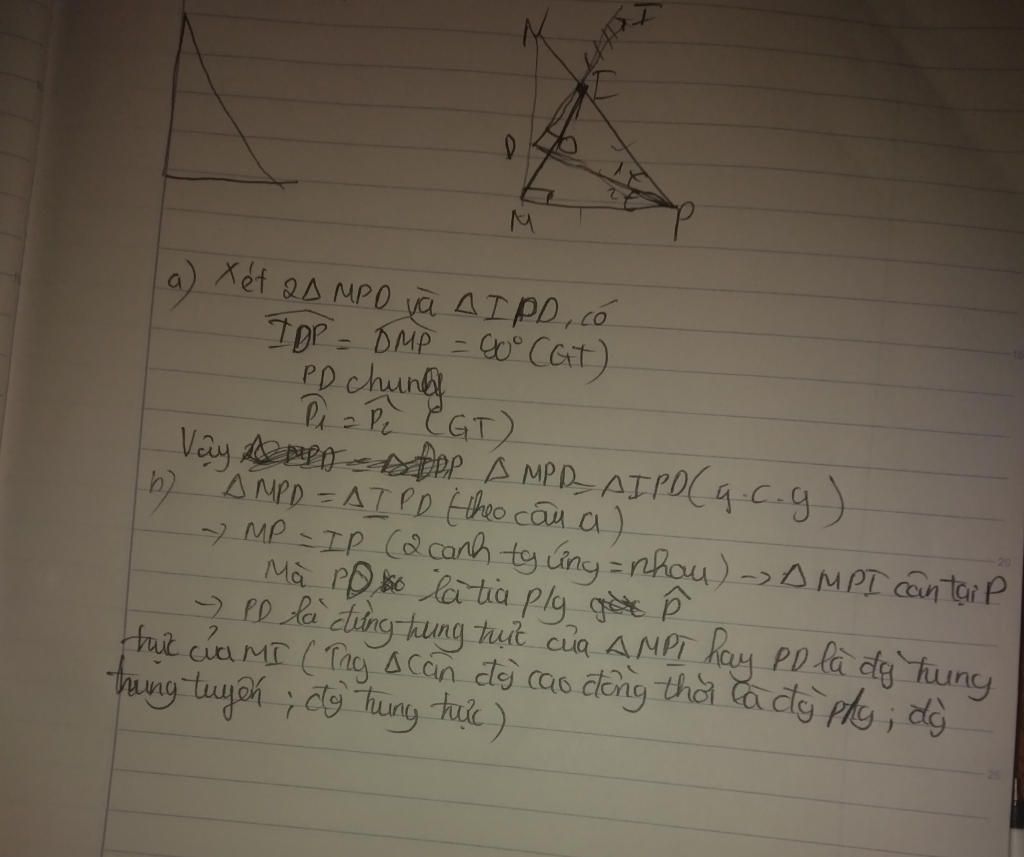 N I
I
D O 1
2
M P
a) Xét 2Δ MPD và Δ IPD, có
IDP = DMP = 90° (GT)
PD chung
P1 = P2 (GT)
Vậy Δ MPD = Δ IPD (g.c.g)
b) Δ MPD = Δ IPD (theo câu a)
→ MP = IP (2 canh tg ứng = nhau) → Δ MPI cân tại P
Mà PD là tia p/g P
→ PD là đừng trung trực của Δ MPI hay PD là đg̀ trung
trực của MI (Trg Δ cân đg̀ cao đồng thời là đg̀ p/g; đg̀
trung tuyến; đg̀ trung trực)